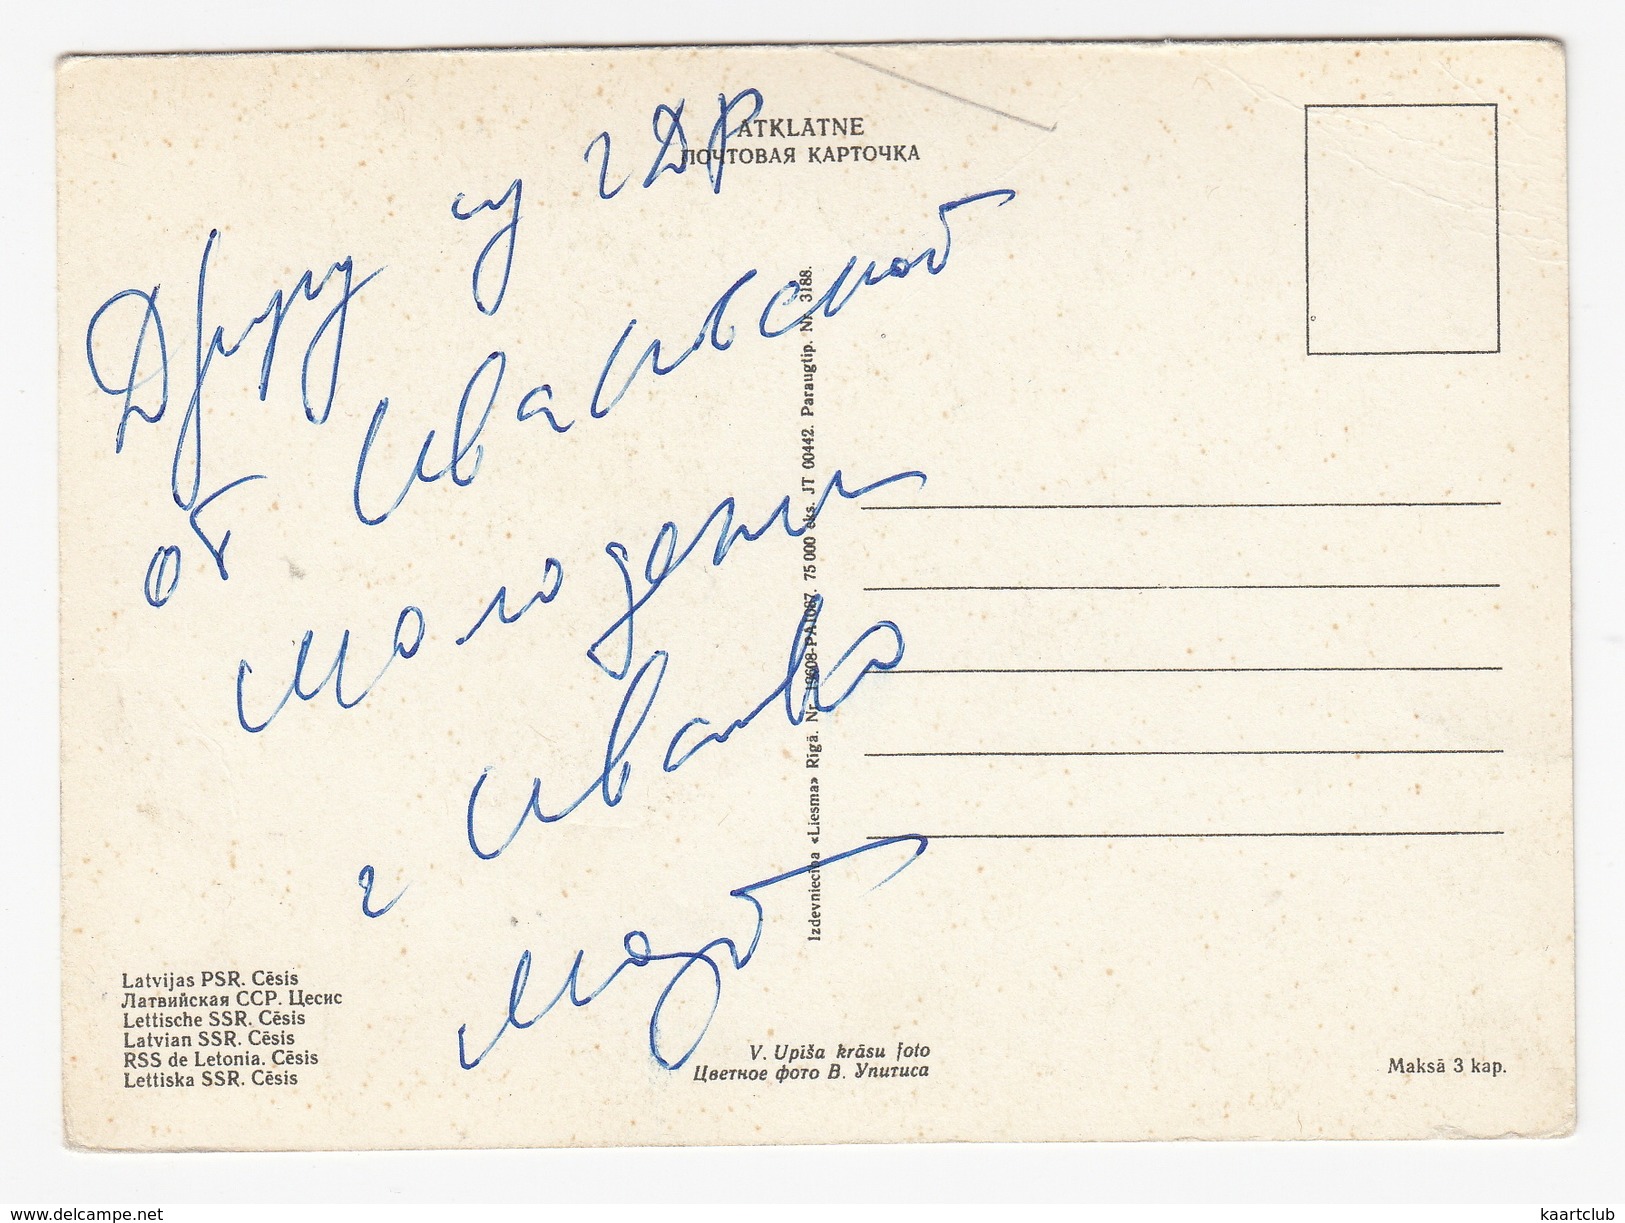 ATKLATNE
ПОЧТОВАЯ КАРТОЧКА
Другу из ГДР
от
молодежи
г Иваново
Izdevniecība «Liesma» Rīgā. Nr. 12608-PA1087. 75 000 eks. JT 00442. Paraugtip. Nr. 3188.
Latvijas PSR. Cēsis
Латвийская ССР. Цесис
Lettische SSR. Cēsis
Latvian SSR. Cēsis
RSS de Letonia. Cēsis
Lettiska SSR. Cēsis
V. Upīša krāsu foto
Цветное фото В. Упитиса
Maksā 3 kap.
www.delcampe.net
kaartclub